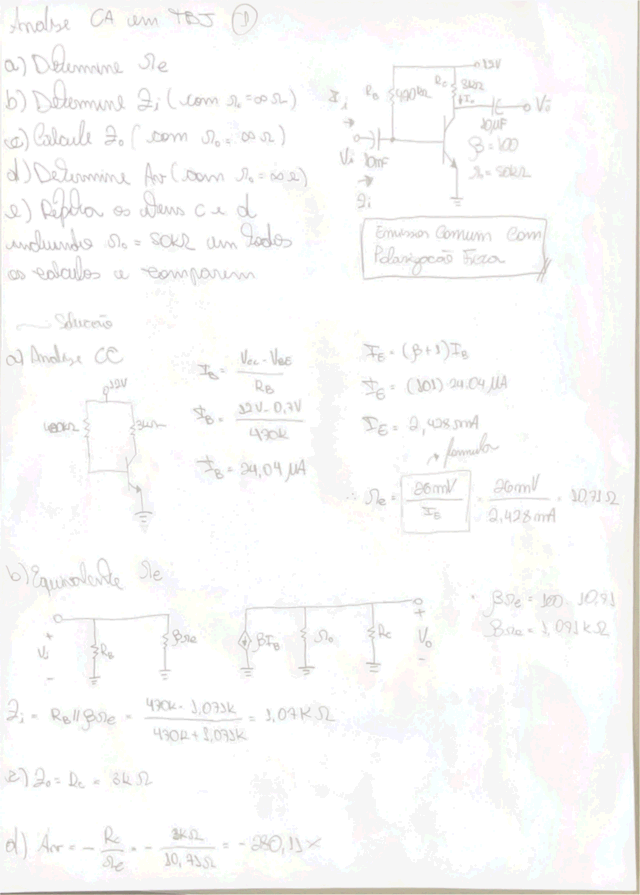 Analise CA em TBJ ①
a) Determine re
b) Determine Zi (com ro = ∞ Ω)
c) Calcule Zo (com ro = ∞ Ω)
d) Determine Av (com ro = ∞ Ω)
e) Repita os itens c e d
incluindo ro = 50kΩ em todos
os calculos e comparem
12V
RB 470kΩ
RC 3kΩ
Io
Ii
Vo
10µF
Vi 10mF
β = 100
ro = 50kΩ
Zi
Emissor Comum Com
Polarização Fixa
Solução
a) Analise CC
12V
3kΩ
IB = Vcc - VBE / RB
IB = 12V - 0,7V / 470k
IB = 24,04 µA
IE = (β+1) IB
IE = (101) 24.04 µA
IE = 2,428 mA
formula
∴ re = 26mV / IE = 26mV / 2,428 mA = 10,71 Ω
b) Equivalente re
+ Vi -
RB
βre
βIB
ro
Rc
+ Vo -
βre = 100 . 10,71
βre = 1,071 kΩ
Zi = RB // βre = 470k . 1,071k / 470k + 1,071k = 1,07 k Ω
c) Zo = Rc = 3k Ω
d) Av = - Rc / re = - 3kΩ / 10,71Ω = - 280,11 x